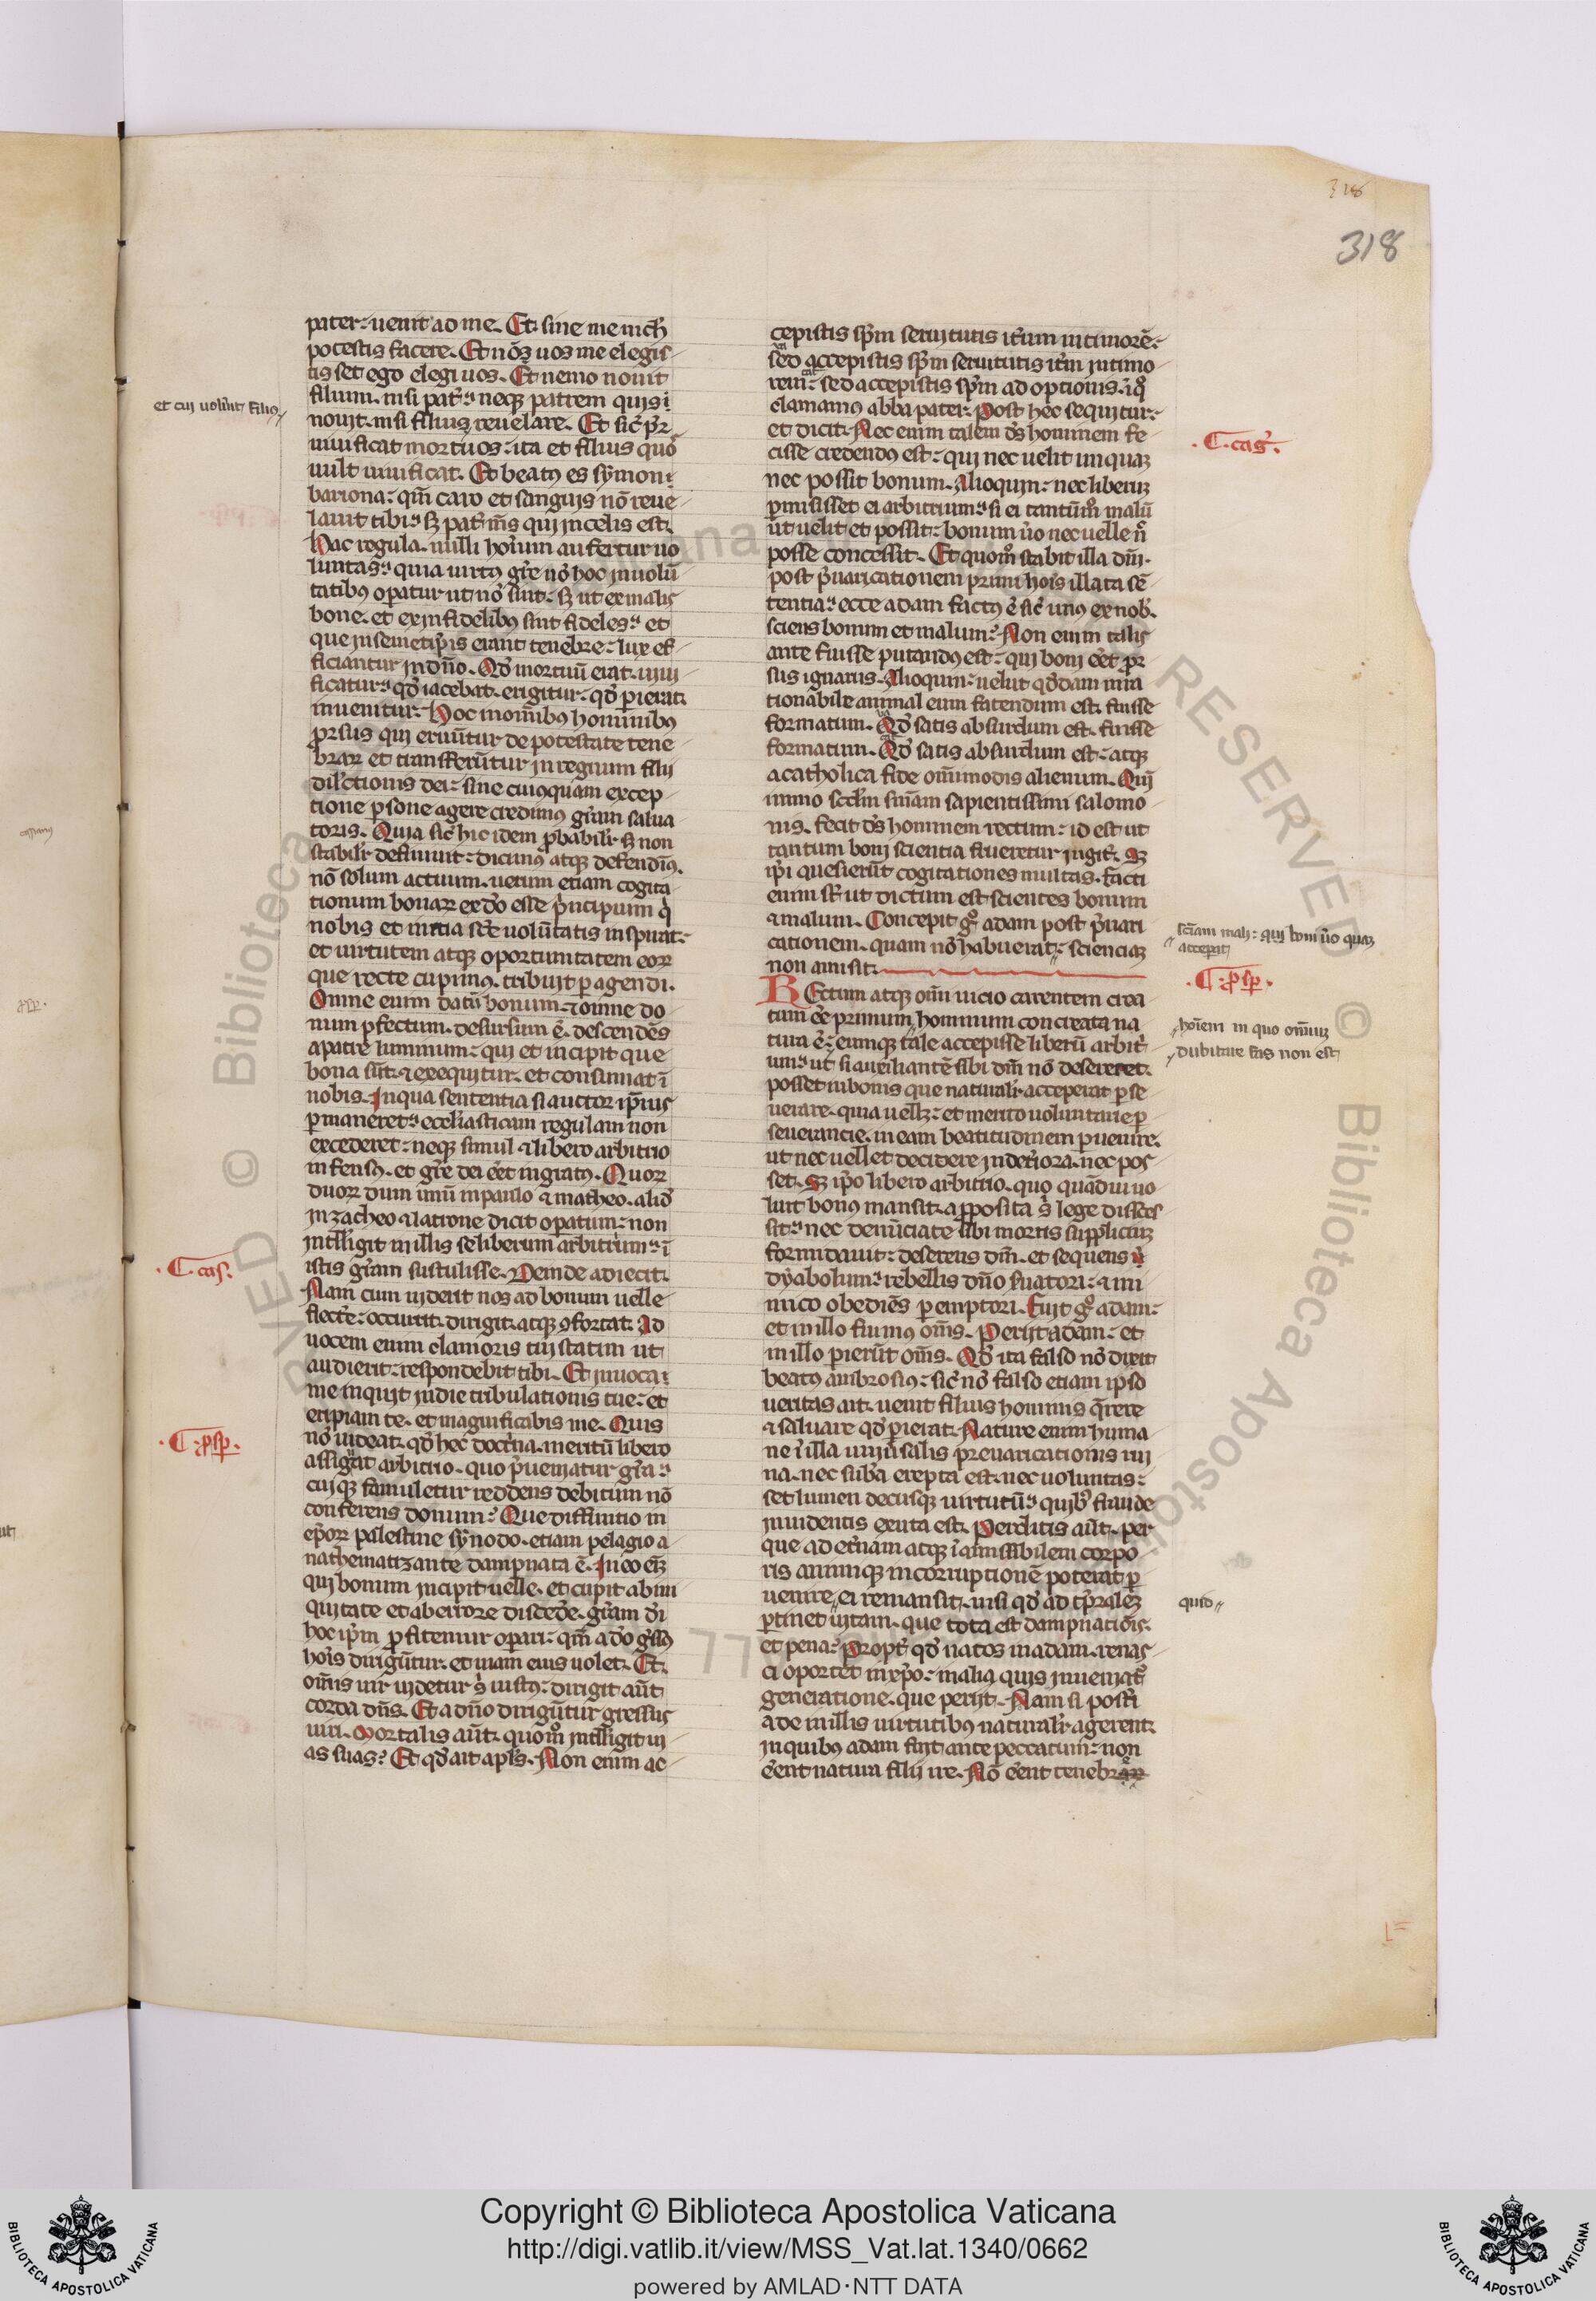 318
318
pater. uenit ad me. Et sine me nich̄
potestis facere. Et nō uos me elegis
tis set ego elegi uos. Et nemo nouit
filium. nisi pat̄. neqꝫ patrem quis ī
et cui uolūit filiꝰ
nouit. nisi filius reuelare. Et sic̄ pr̄
uiuificat mortuos. ita et filius quos
uult uiuificat. Et beatꝰ es symon
bariona. qm̄ caro et sanguis nō reue
lauit tibi. sꝫ pat̄ ms̄ qui in celis est.
Hac regula. nulli hoīum aufertur uo
luntas. quia uirtꝰ gr̄e nō hoc in uolū
tatibꝰ opatur ut nō sint. sꝫ ut ex malis
bone. et ex infidelibꝰ sint fideles. et
que in semetip̄is erant tenebre. lux ef
ficiantur in dn̄o. Qd̄ mortuū erat. uiui
ficatur. qd̄ iacebat. erigitur. qd̄ pierat.
inuenitur. Hoc in om̄ibꝰ hominibꝰ
prsus qui eruūtur de potestate tene
braꝝ et transferūtur in regnum filij
dilc̄tionis dei. sine cuiusquam excep
tione psone agere credimꝰ gr̄am salua
toris. Quia sic̄ hic idem pbabilr̄ sꝫ non
stabilr̄ definiuit. dicimꝰ atqꝫ defendimꝰ.
nō solum actuum. uerum etiam cogita
tionum bonaꝝ ex dō esse p̄ncipium q̄
nobis et initia sc̄e uolūtatis inspirat.
et uirtutem atqꝫ oportunitatem eoꝝ
que recte cupimꝰ. tribuit pagendi.
Omne enim datū bonum. ⁊ omne do
num pfectum. desursum ē. descendēs
a patre luminum. qui et incipit que
bona sūt. ⁊ exequitur. et consumat ī
nobis. In qua sententia si auctor ip̄ius
pmaneret. ecclīasticam regulam non
excederet. neqꝫ simul ⁊ libero arbitrio
infensꝰ. et gr̄e dei eēt ingratꝰ. Quoꝝ
duoꝝ dum unū in paulo ⁊ matheo. aliđ
in zacheo ⁊ latrone dicit opatum. non
intelligit in illis se liberum arbitrium. ī
C. cas.
istis gr̄am sustulisse. Deinde adiecit.
Nam cum uiderit nos ad bonum uelle
flectē. occurrit. dirigit. atqꝫ ꝯfortat. Ad
uocem enim clamoris tui statim ut
audierit. respondebit tibi. Et inuoca
me inquit in die tribulationis tue. et
eripiam te. et magnificabis me. Quis
C. psp.
nō uideat. qd̄ hec doctīna. meritū libero
assignat arbitrio. quo p̄ueniatur gr̄a.
cui qꝫ famuletur reddens debitum nō
conferens donum. Que diffinitio in
ep̄oꝝ palestine synodo. etiam pelagio a
nathematizante dampnata ē. In eo eīꝫ
qui bonum incipit uelle. et cupit ab ini
quitate et ab errore discedē. gr̄am dī
hoc ip̄m pfitemur opari. qm̄ a dō gssꝰ
hoīs dirigūtur. et uiam eius uolet. Et
om̄is uir uidetur s̄ iustꝰ. dirigit aūt
corda dn̄s. Et a dn̄o dirigūtur gressus
uiri. Mortalis aūt. quom̄ intelligit ui
as suas. Et qd̄ ait apls̄. Non enim ac
cepistis sp̄m seruitutis itūm in timorē.
sed accepistis sp̄m seruitutis itm̄ in timo
rem. sed accepistis sp̄m adoptionis. ī q̊
clamamꝰ abba pater. Post hec sequitur.
C. cas.
et dicit. Nec enim talem ds̄ hominem fe
cisse credendꝰ est. qui nec uelit unquaꝫ
nec possit bonum. Alioquin. nec liberuꝫ
pmisisset ei arbitrium. si ei tantūm̊ malū
ut uelit et possit. bonum ūo nec uelle n̊
posse concessit. Et quom̊ stabit illa dn̄i.
post p̄uaricationem primi hoīs illata sē
tentia. ecce adam factꝰ ē sic̄ unꝰ ex nob̄.
sciens bonum et malum. Non enim talis
ante fuisse putandꝰ est. qui boni eēt pr
sus ignarus. Alioquin. uelut qd̄dam irra
tionabile animal eum fatendum est. fuisse
formatum. Qd̄ satis absurdum est. fuisse
formatum. Qd̄ satis absurdum est. atqꝫ
a catholica fide om̄imodis alienum. Quī
immo scd̄m sn̄iam sapientissimi salomo
nis. fecit ds̄ hominem rectum. id est ut
tantum boni scientia frueretur iugit̄. Sꝫ
ip̄i quesierūt cogitationes multas. facti
enim st̄ ut dictum est scientes bonum
⁊ malum. Concepit g̊ adam post p̄uari
cationem. quam nō habuerat. scienciaꝫ
scīam mali. qui boni ūo quaꝫ
accepat
non amisit.
C. psp.
REctum atqꝫ om̄i uicio carentem crea
tum eē primum hominum concreata na
hoīem in quo om̄iuꝫ
tura ē. eumqꝫ tale accepisse liberū arbit̄
dubitare fas non est
um. ut si auxiliantē sibi dn̄m nō desereret.
posset in bonis que naturalr̄ acceperat pse
uerare. quia uelleꝫ. et merito uoluntarie p
seuerancie. in eam beatitudinem puenire.
ut nec uellet decidere in detīora. nec pos
set. Sꝫ ip̄o libero arbitrio. quo quādiu uo
luit bonus mansit. apposita s̄ lege disces
sit. nec denūciate sibi mortis suppliciuꝫ
formidauit. deserens dm̄. et sequens
dyabolum. rebellis dn̄o suatori. ⁊ ini
mico obediēs pemptori. Fuit g̊ adam.
et in illo fuimꝰ om̄s. Perijt adam. et
in illo pierūt om̄s. Qd̄ ita falso nō dixit
beatꝰ ambrosiꝰ. sic̄ nō falso etiam ipsa
ueritas ait. uenit filius hominis q̄rere
⁊ saluare qd̄ pierat. Nature enim huma
ne ī illa uniūsalis preuaricationis rui
na. nec sub̄a erepta est. nec uoluntas.
set lumen decusqꝫ uirtutū. quibꝰ fraude
inuidentis exuta est. Perditis aūt. per
que ad et̄nam atqꝫ īamissibilem corpo
ris animiqꝫ incorruptionē poterat p
uenire, ei remansit. nisi qd̄ ad tp̄raleꝫ
quid
ptinet uitam. que tota est dampnatiōis.
et pena. Propt̄ qd̄ natos in adam. renas
ci oportet in xp̄o. in aliꝰ quis inueniat̄
generatione. que perijt. Nam si post̄i
ade in illis uirtutibꝰ naturalr̄ agerent.
in quibus adam fuit ante peccatum. non
eēnt natura filij ire. Nō eēnt tenebr
Copyright © Biblioteca Apostolica Vaticana
http://digi.vatlib.it/view/MSS_Vat.lat.1340/0662
powered by AMLAD·NTT DATA
BIBLIOTECA APOSTOLICA VATICANA
BIBLIOTECA APOSTOLICA VATICANA